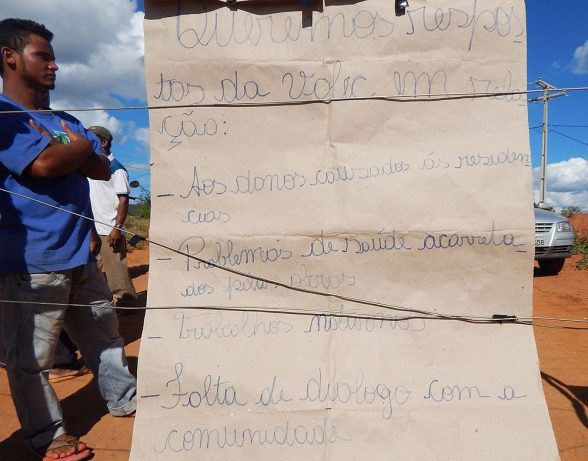 Queremos respos
tas da Valec em rela
ção:
- Aos danos causados ás residen
cias
- Problemas de saúde acarreta
dos pelas obras
- Trabalhos noturnos
- Falta de dialogo com a
comunidade